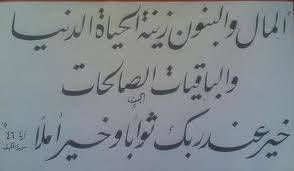 المال والبنون زينة الحياة الدنيا
والباقيات الصالحات
خير عند ربك ثوابا وخير أملا
آية ٤٦
سورة الكهف